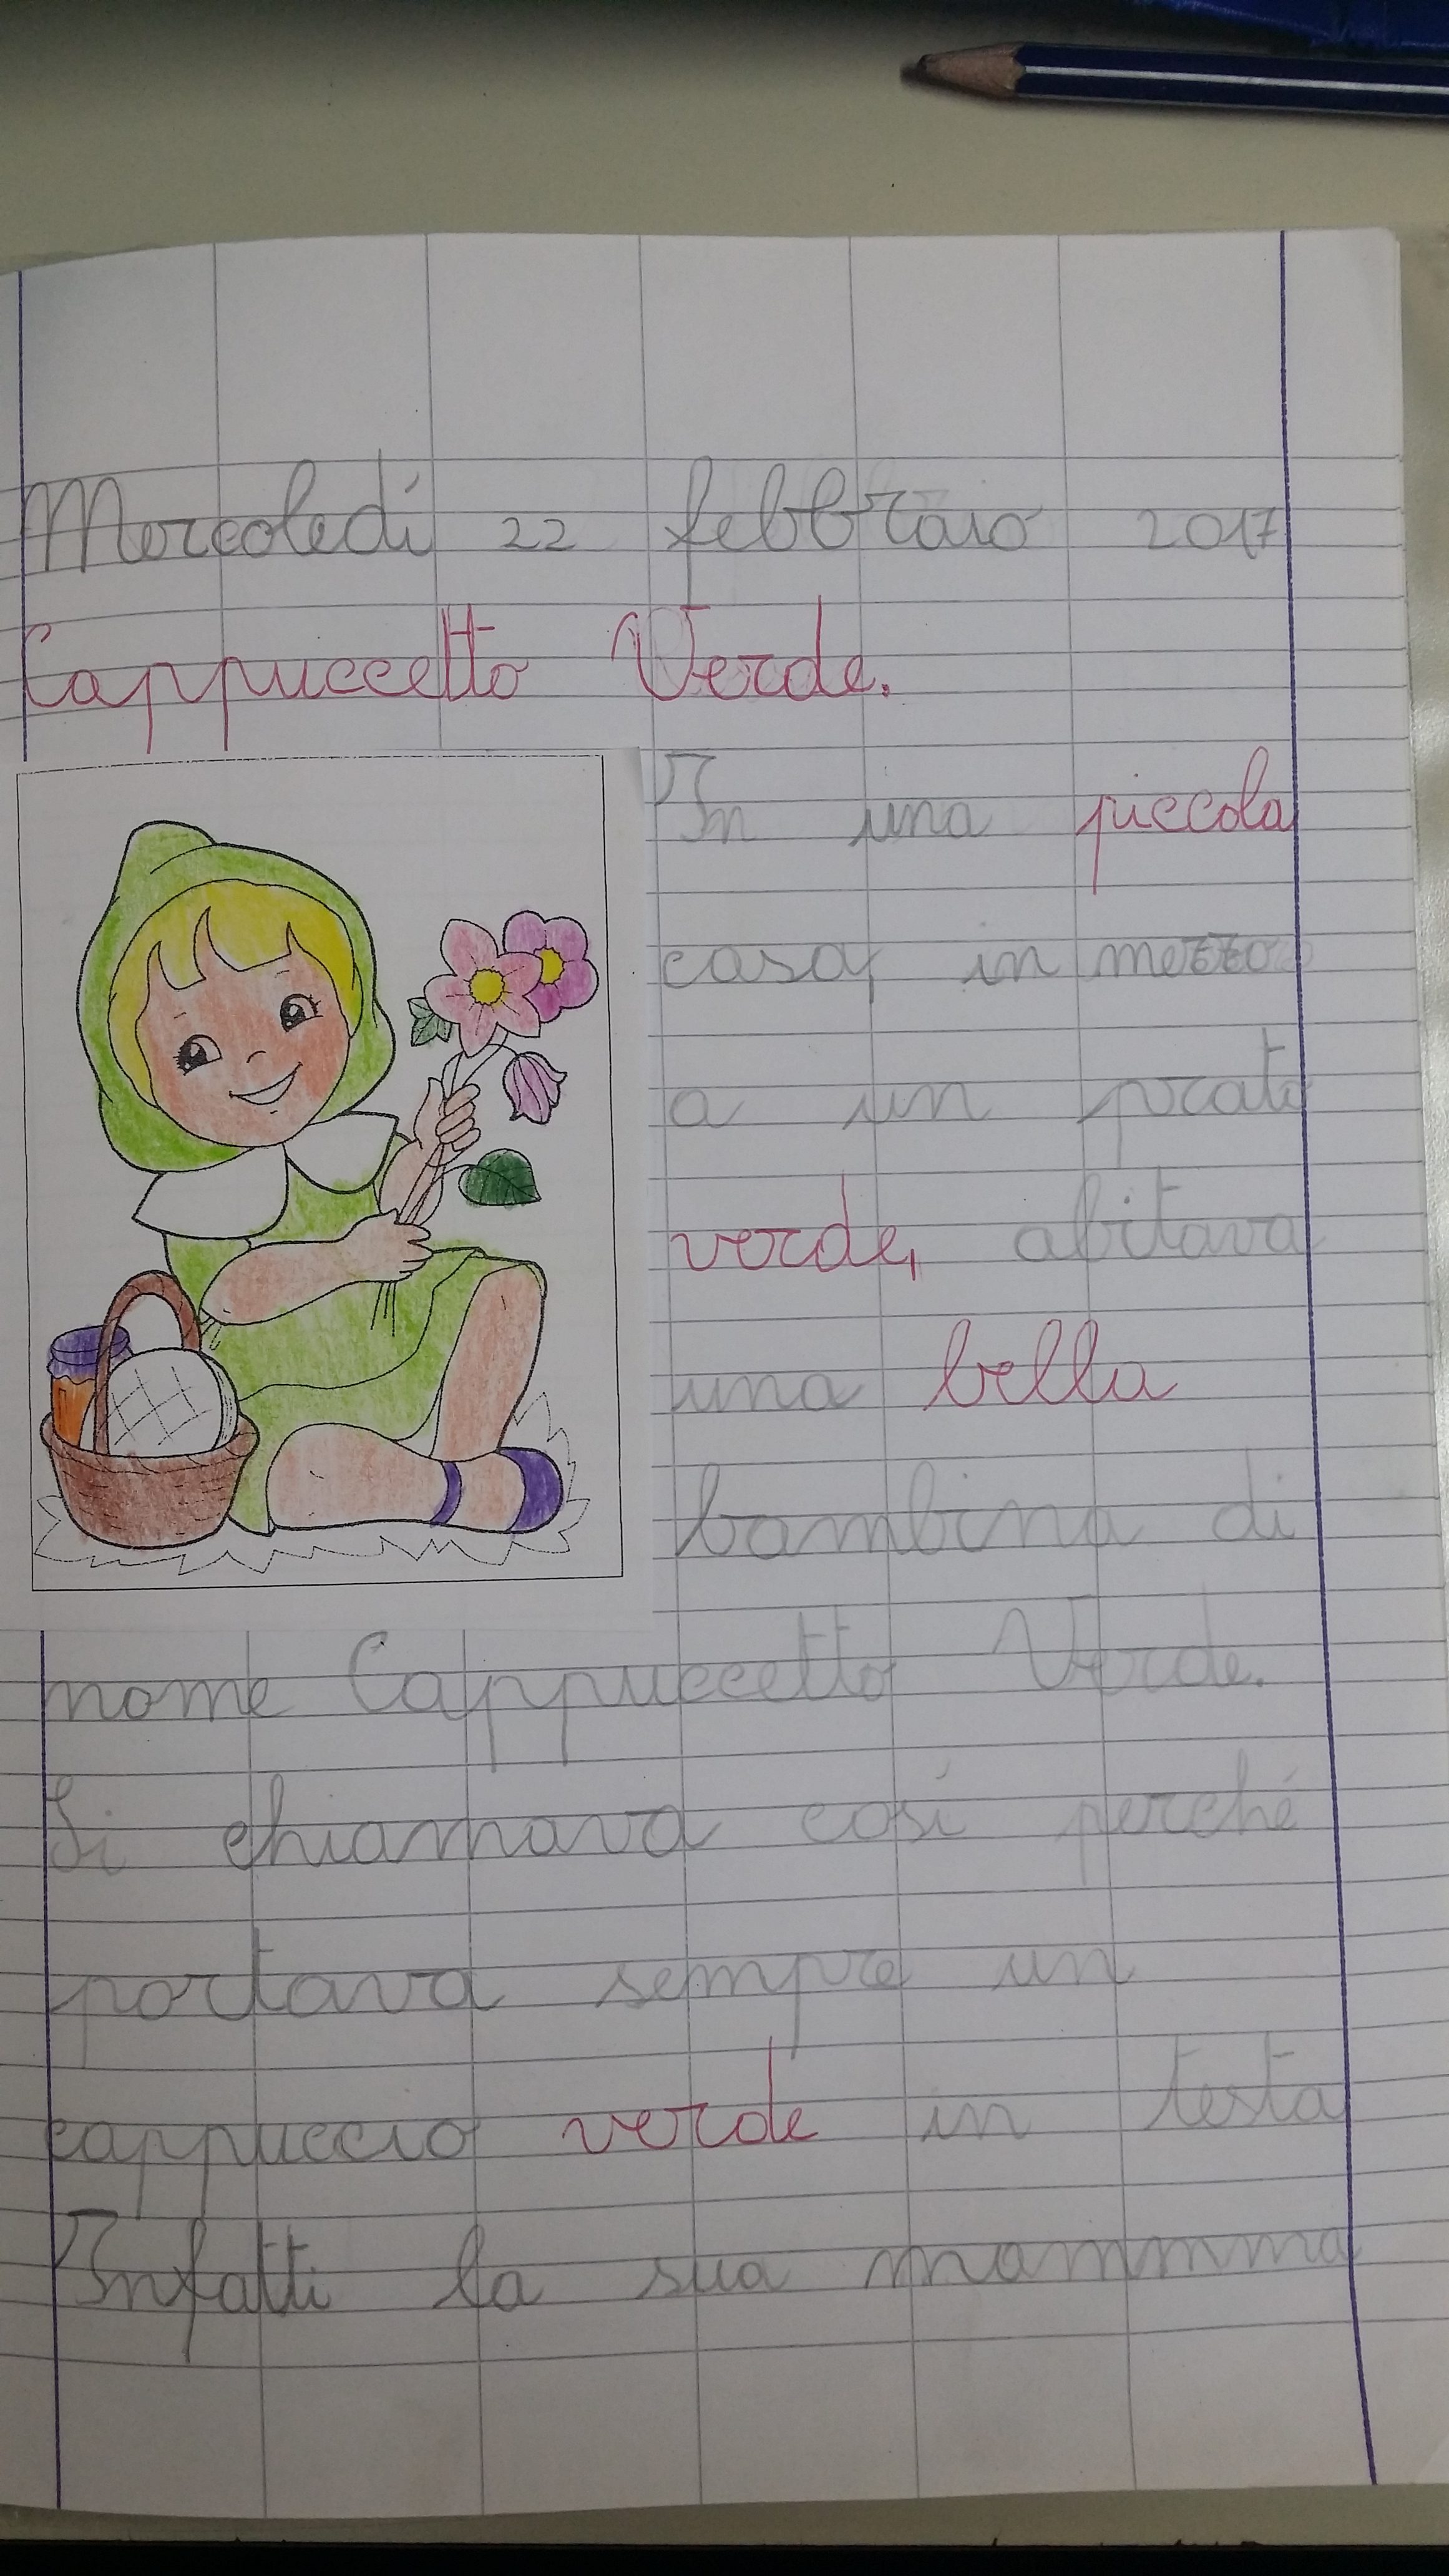 Mercoledí 22 febbraio 2017
Cappuccetto Verde.
In una piccola
casa, in mezzo
a un prato
verde, abitava
una bella
bambina di
nome Cappuccetto Verde.
Si chiamava cosí perché
portava sempre un
cappuccio verde in testa
Infatti la sua mamma